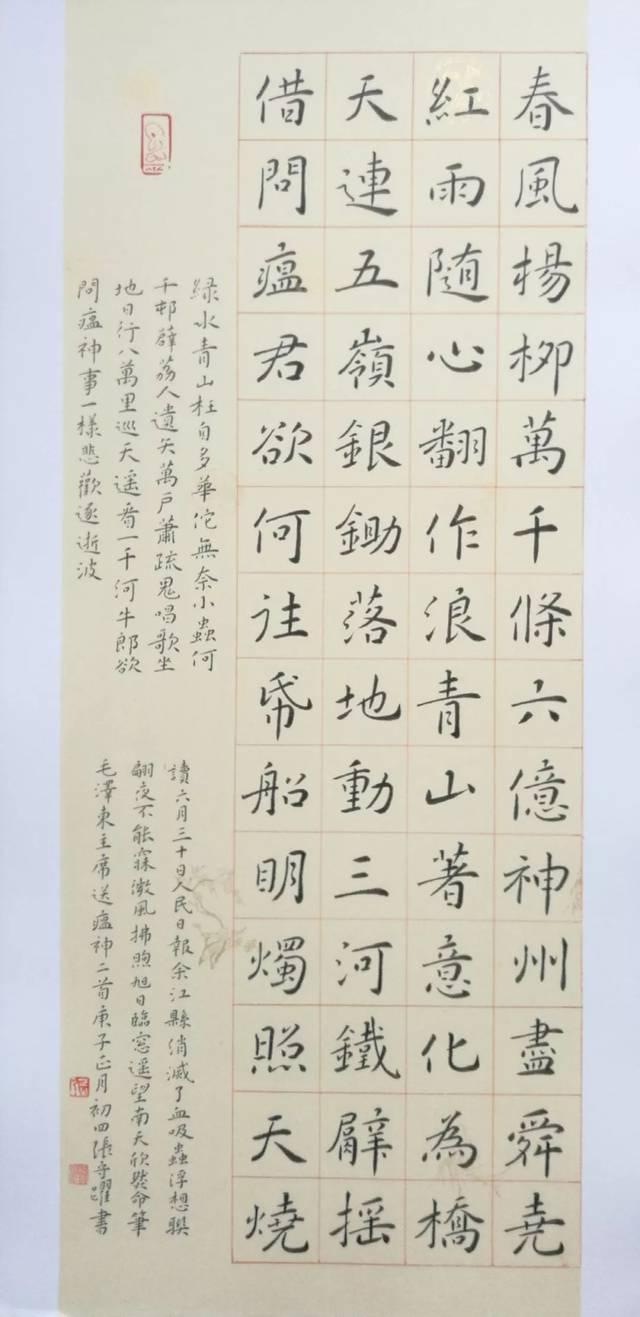 春風楊栁萬千條六億神州盡舜堯
紅雨隨心翻作浪青山著意化為橋
天連五嶺銀鋤落地動三河鐵臂搖
借問瘟君欲何往帋船明燭照天燒
緑水青山枉自多華佗無奈小蟲何
千邨薜荔人遺矢萬戶蕭疏鬼唱歌坐
地日行八萬里巡天遥看一千河牛郎欲
問瘟神事一樣悲歡逐逝波
讀六月三十日人民日報余江縣消滅了血吸蟲浮想聯
翩夜不能寐微風拂煦旭日臨窓遥望南天欣然命筆
毛澤東主席送瘟神二首庚子正月初四張守躍書